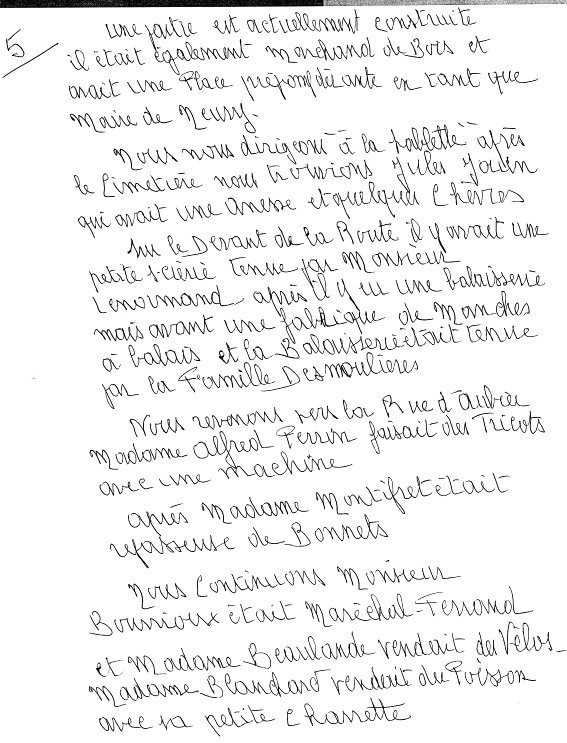 5
une partie est actuellement construite
il était également Marchand de Bois et
avait une Place prépondérante en tant que
Maire de Neuvy.
Nous nous dirigeons à la sablette après
le Cimetière nous trouvions Jules Jouin
qui avait une Anesse et quelques Chèvres
Sur le Devant de la Route il y avait une
petite scierie tenue par Monsieur
Lenormand après il y eu une balaisserie
mais avant une fabrique de Manches
à balais et la Balaisserie était tenue
par la Famille Desmoulières
Nous revenons vers la Rue d'aubrée
Madame Alfred Perrin faisait des Tricots
avec une machine
après Madame Montifret était
repasseuse de Bonnets
Nous Continuons Monsieur
Boursioux était Maréchal-Ferrand
et Madame Beaulande vendait des Vélos-
Madame Blanchard vendait du Poisson
avec sa petite Charrette